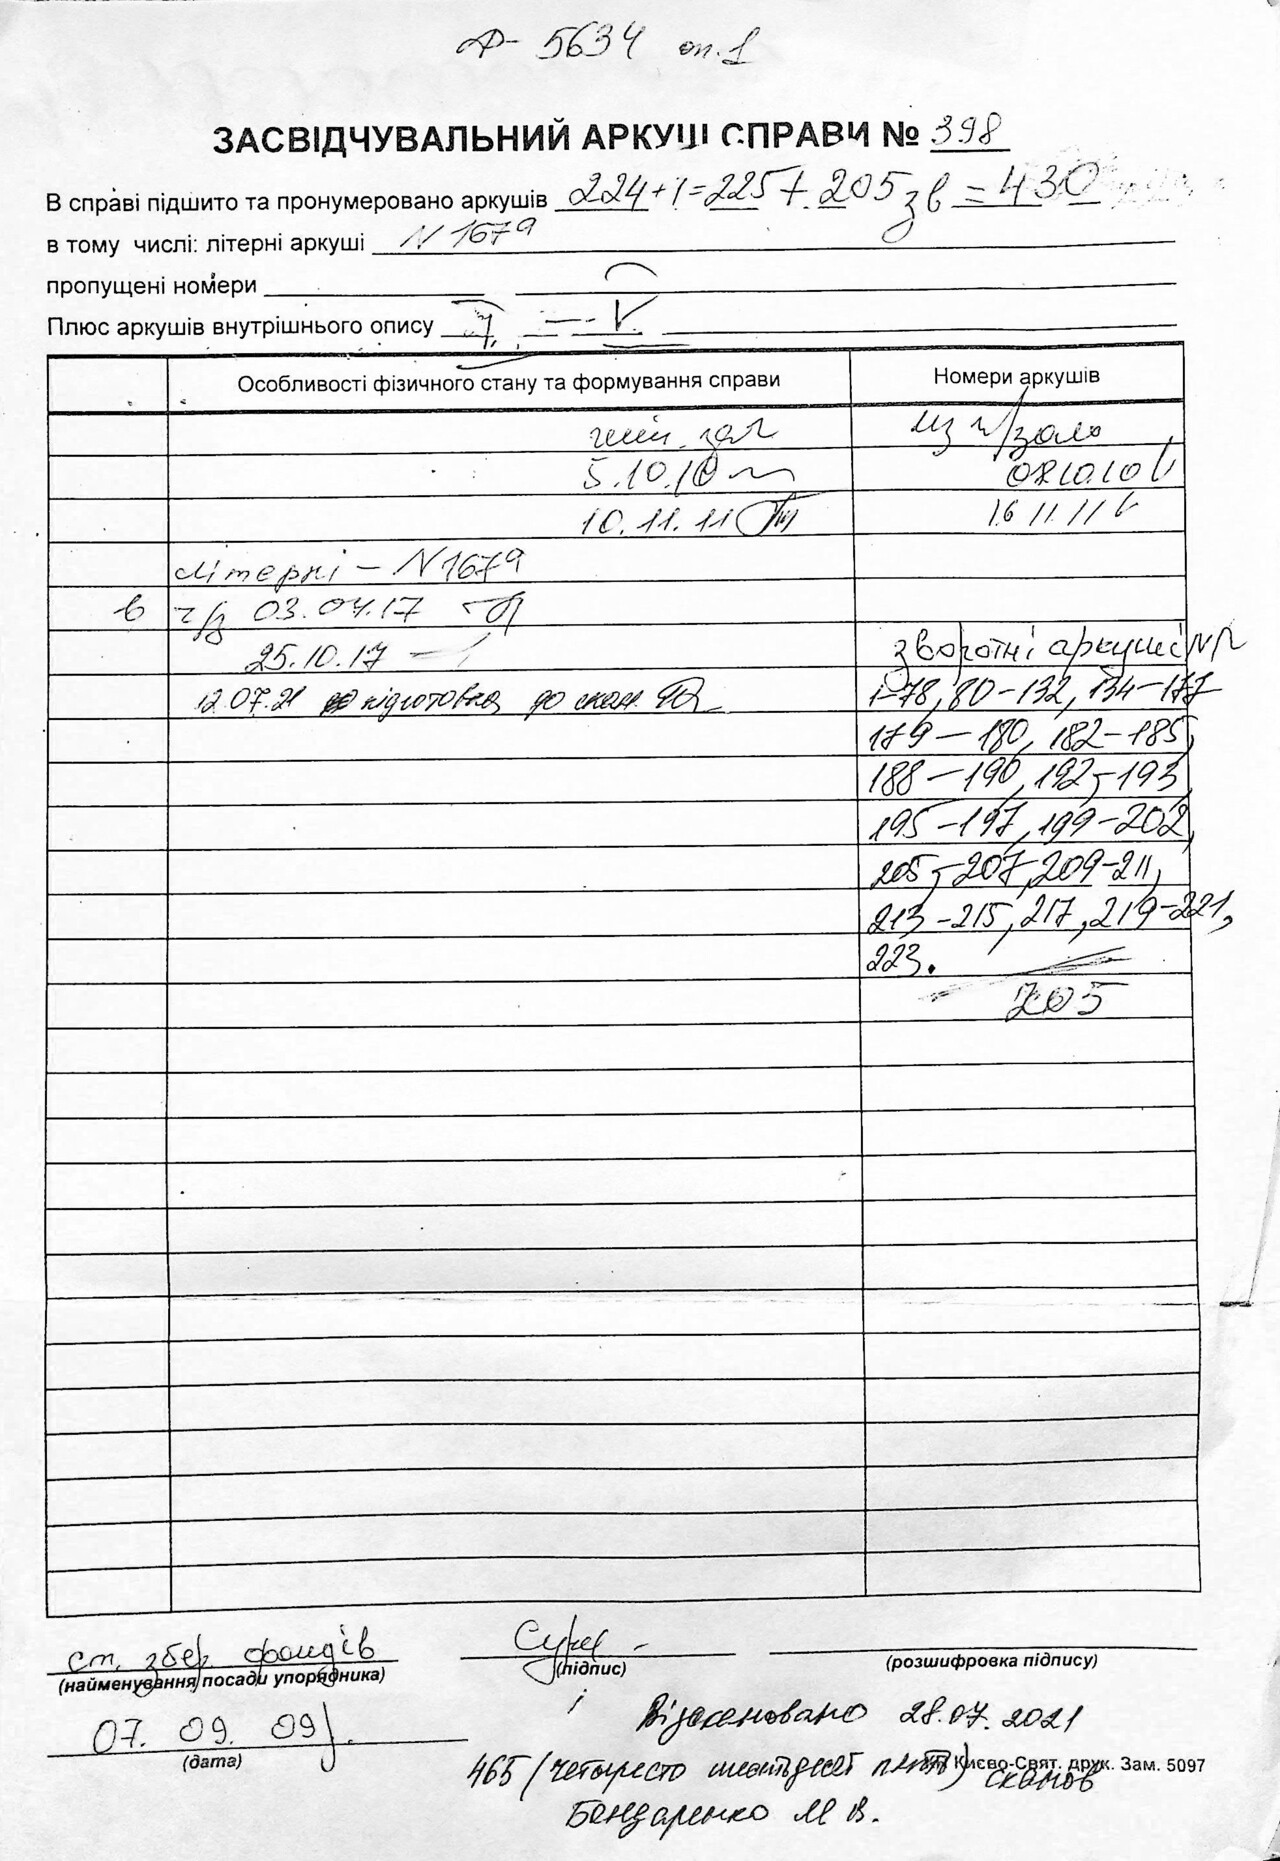 Ф- 5634 оп.1
ЗАСВІДЧУВАЛЬНИЙ АРКУШ СПРАВИ № 398
В справі підшито та пронумеровано аркушів 224+1=225+205 зв = 430
в тому числі: літерні аркуші N 167а
пропущені номери
Плюс аркушів внутрішнього опису
Особливості фізичного стану та формування справи Номери аркушів
чит. зал из ч/зала
5.10.10 08.10.10
10.11.11 16.11.11
літерні – N 167а
в ч/з 03.04.17
25.10.17
зворотні аркуші NN
12.07.21 підготовка до скан. 1-78, 80-132, 134-177
179-180, 182-185,
188-190, 192-193,
195-197, 199-202,
205-207, 209-211,
213-215, 217, 219-221,
223.
205
ст. збер. фондів
(найменування посади упорядника) (підпис) (розшифровка підпису)
07. 09. 09р.
(дата)
Відскановано 28.07.2021
КП Києво-Свят. друк. Зам. 5097
465 (чотириста шістдесят п'ять) сканов
Бондаренко М В.